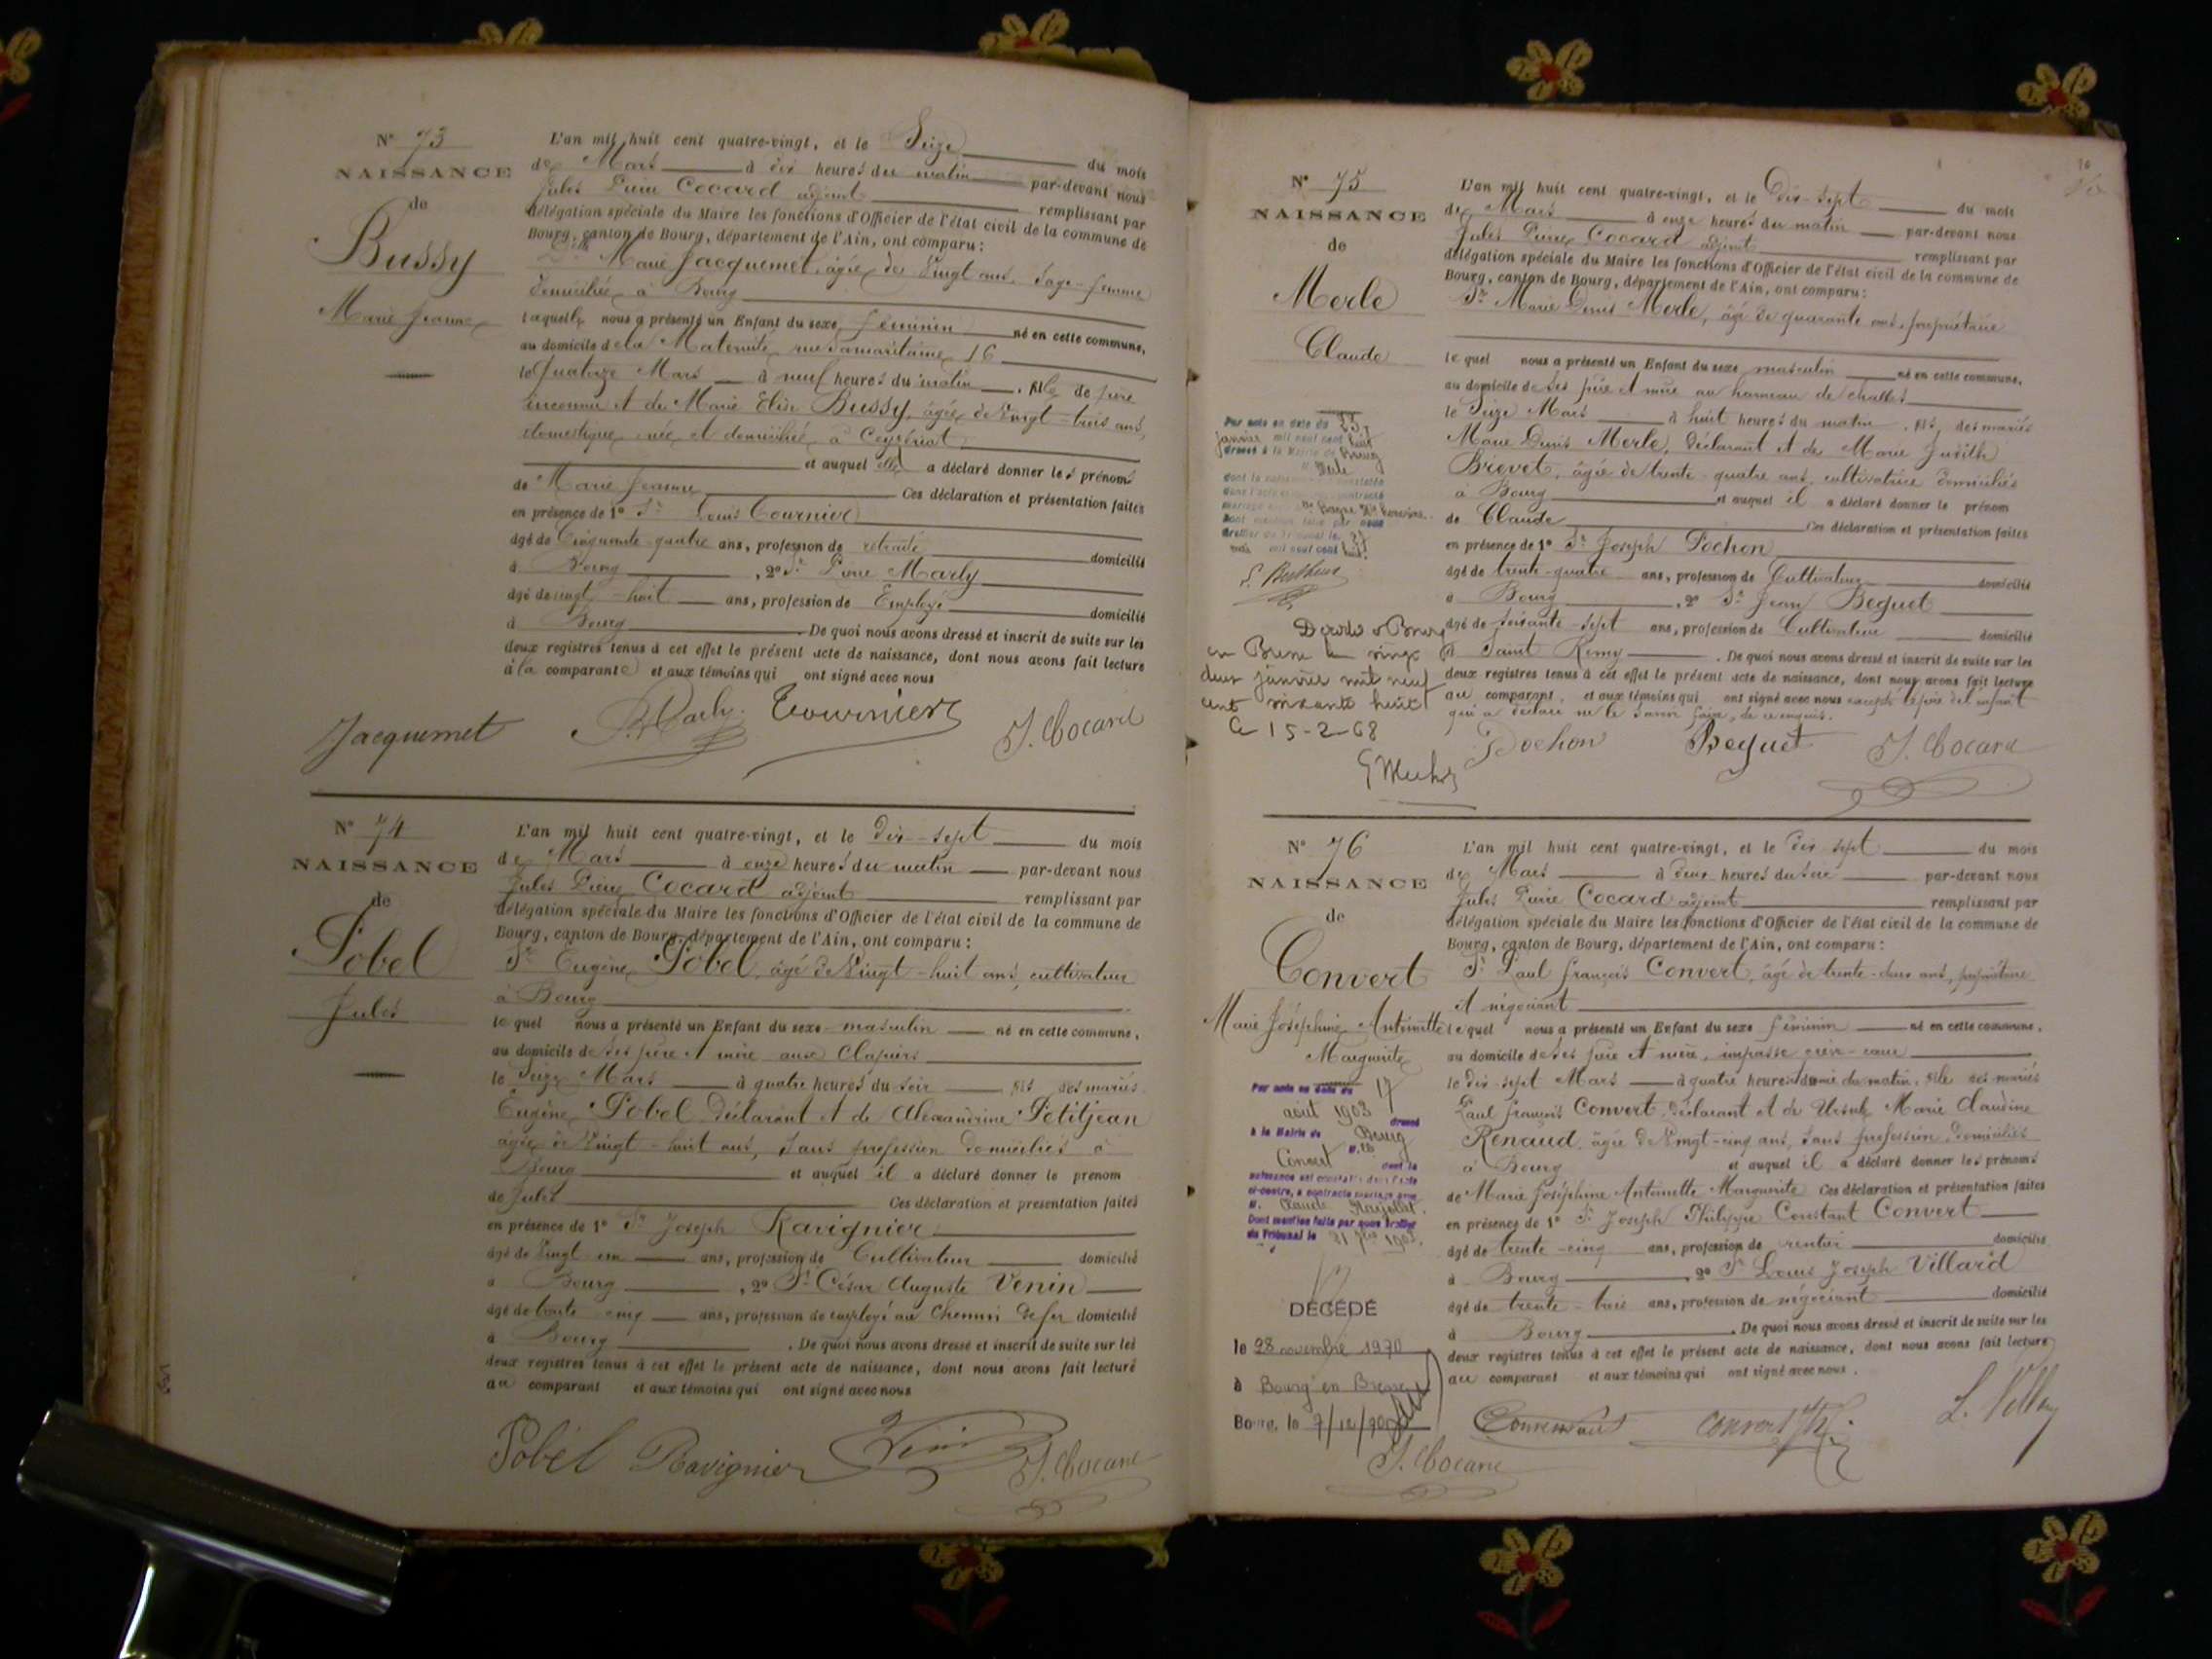 N° 73
NAISSANCE
de
Bussy
Marie Jeanne
L'an mil huit cent quatre-vingt, et le Seize du mois
de Mars à dix heures du matin par-devant nous
Jules Pierre Cocard adjoint remplissant par
délégation spéciale du Maire les fonctions d'Officier de l'état civil de la commune de
Bourg, canton de Bourg, département de l'Ain, ont comparu :
Delle Marie Jacquemet, âgée de Vingt ans, Sage-femme
domiciliée à Bourg
laquelle nous a présenté un Enfant du sexe féminin né en cette commune,
au domicile de la Maternité, rue Samaritaine, 16
le Quatorze Mars à neuf heures du matin, fille de père
inconnu et de Marie Elise Bussy, âgée de Vingt-trois ans,
domestique, née et domiciliée à Ceyzériat
et auquel elle a déclaré donner les prénoms
de Marie Jeanne Ces déclaration et présentation faites
en présence de 1° Sr Louis Tournier
âgé de Cinquante-quatre ans, profession de retraité domicilié
à Bourg, 2° Sr Pierre Marly
âgé de vingt-huit ans, profession de Employé domicilié
à Bourg. De quoi nous avons dressé et inscrit de suite sur les
deux registres tenus à cet effet le présent acte de naissance, dont nous avons fait lecture
à la comparante et aux témoins qui ont signé avec nous
Jacquemet Tournier J. Cocard
N° 74
NAISSANCE
de
Pobel
Jules
L'an mil huit cent quatre-vingt, et le dix-sept du mois
de Mars à onze heures du matin par-devant nous
Jules Pierre Cocard adjoint remplissant par
délégation spéciale du Maire les fonctions d'Officier de l'état civil de la commune de
Bourg, canton de Bourg, département de l'Ain, ont comparu :
Sr Eugène Pobel, âgé de Vingt-huit ans, cultivateur
à Bourg
lequel nous a présenté un Enfant du sexe masculin né en cette commune,
au domicile de ses père et mère aux Clapiers
le Seize Mars à quatre heures du soir fils des mariés
Eugène Pobel, déclarant et de Alexandrine Petitjean
âgée de Vingt-huit ans, sans profession domiciliés à
Bourg et auquel il a déclaré donner le prénom
de Jules Ces déclaration et présentation faites
en présence de 1° Sr Joseph Ravignier
âgé de Vingt un ans, profession de Cultivateur domicilié
à Bourg, 2° Sr César Auguste Venin
âgé de trente cinq ans, profession de employé au Chemin de fer domicilié
à Bourg. De quoi nous avons dressé et inscrit de suite sur les
deux registres tenus à cet effet le présent acte de naissance, dont nous avons fait lecture
au comparant et aux témoins qui ont signé avec nous
Pobel Ravignier Venin J. Cocard
N° 75
NAISSANCE
de
Merle
Claude
L'an mil huit cent quatre-vingt, et le Dix-sept du mois
de Mars à onze heures du matin par-devant nous
Jules Pierre Cocard adjoint remplissant par
délégation spéciale du Maire les fonctions d'Officier de l'état civil de la commune de
Bourg, canton de Bourg, département de l'Ain, ont comparu :
Sr Marie Denis Merle, âgé de quarante ans, propriétaire
lequel nous a présenté un Enfant du sexe masculin né en cette commune,
au domicile de ses père et mère au hameau de Challes
le Seize Mars à huit heures du matin, fils des mariés
Marie Denis Merle, déclarant et de Marie Judith
Brevet, âgée de trente-quatre ans, cultivatrice domiciliés
à Bourg et auquel il a déclaré donner le prénom
de Claude Ces déclaration et présentation faites
en présence de 1° Sr Joseph Pochon
âgé de trente-quatre ans, profession de Cultivateur domicilié
à Bourg, 2° Sr Jean Beguet
âgé de soixante-sept ans, profession de Cultivateur domicilié
à Saint Remy. De quoi nous avons dressé et inscrit de suite sur les
deux registres tenus à cet effet le présent acte de naissance, dont nous avons fait lecture
au comparant et aux témoins qui ont signé avec nous excepté le père de l'enfant
qui a déclaré ne le savoir faire, de ce enquis.
Par acte en date du 25
janvier mil neuf cent huit
dressé à la Mairie de Bourg
Décédé à Bourg
en Bresse le vingt
deux janvier mil neuf
cent soixante huit
Le 15-2-68
Pochon Beguet J. Cocard
N° 76
NAISSANCE
de
Convert
Marie Joséphine Antoinette
Marguerite
L'an mil huit cent quatre-vingt, et le dix sept du mois
de Mars à deux heures du soir par-devant nous
Jules Pierre Cocard adjoint remplissant par
délégation spéciale du Maire les fonctions d'Officier de l'état civil de la commune de
Bourg, canton de Bourg, département de l'Ain, ont comparu :
Sr Paul François Convert, âgé de trente-deux ans, propriétaire
et négociant
lequel nous a présenté un Enfant du sexe féminin né en cette commune,
au domicile de ses père et mère, impasse crève-coeur
le dix-sept Mars à quatre heures et demie du matin, fille des mariés
Paul François Convert, déclarant et de Ursule Marie Claudine
Renaud, âgée de Vingt-cinq ans, sans profession, domiciliés
à Bourg et auquel il a déclaré donner les prénoms
de Marie Joséphine Antoinette Marguerite Ces déclaration et présentation faites
en présence de 1° Sr Joseph Philippe Constant Convert
âgé de trente-cinq ans, profession de rentier domicilié
à Bourg, 2° Sr Louis Joseph Villard
âgé de trente-trois ans, profession de négociant domicilié
à Bourg. De quoi nous avons dressé et inscrit de suite sur les
deux registres tenus à cet effet le présent acte de naissance, dont nous avons fait lecture
au comparant et aux témoins qui ont signé avec nous.
Par acte en date du 17
août 1903 dressé
à la Mairie de Bourg
Convert dont la
naissance est constatée dans l'acte
ci-contre, a contracté mariage avec
M. Claude
Dont mention faite par nous greffier
du Tribunal le 31
DÉCÉDÉ
le 28 novembre 1970
à Bourg en Bresse
Bourg, le 7/12/70
J. Cocard